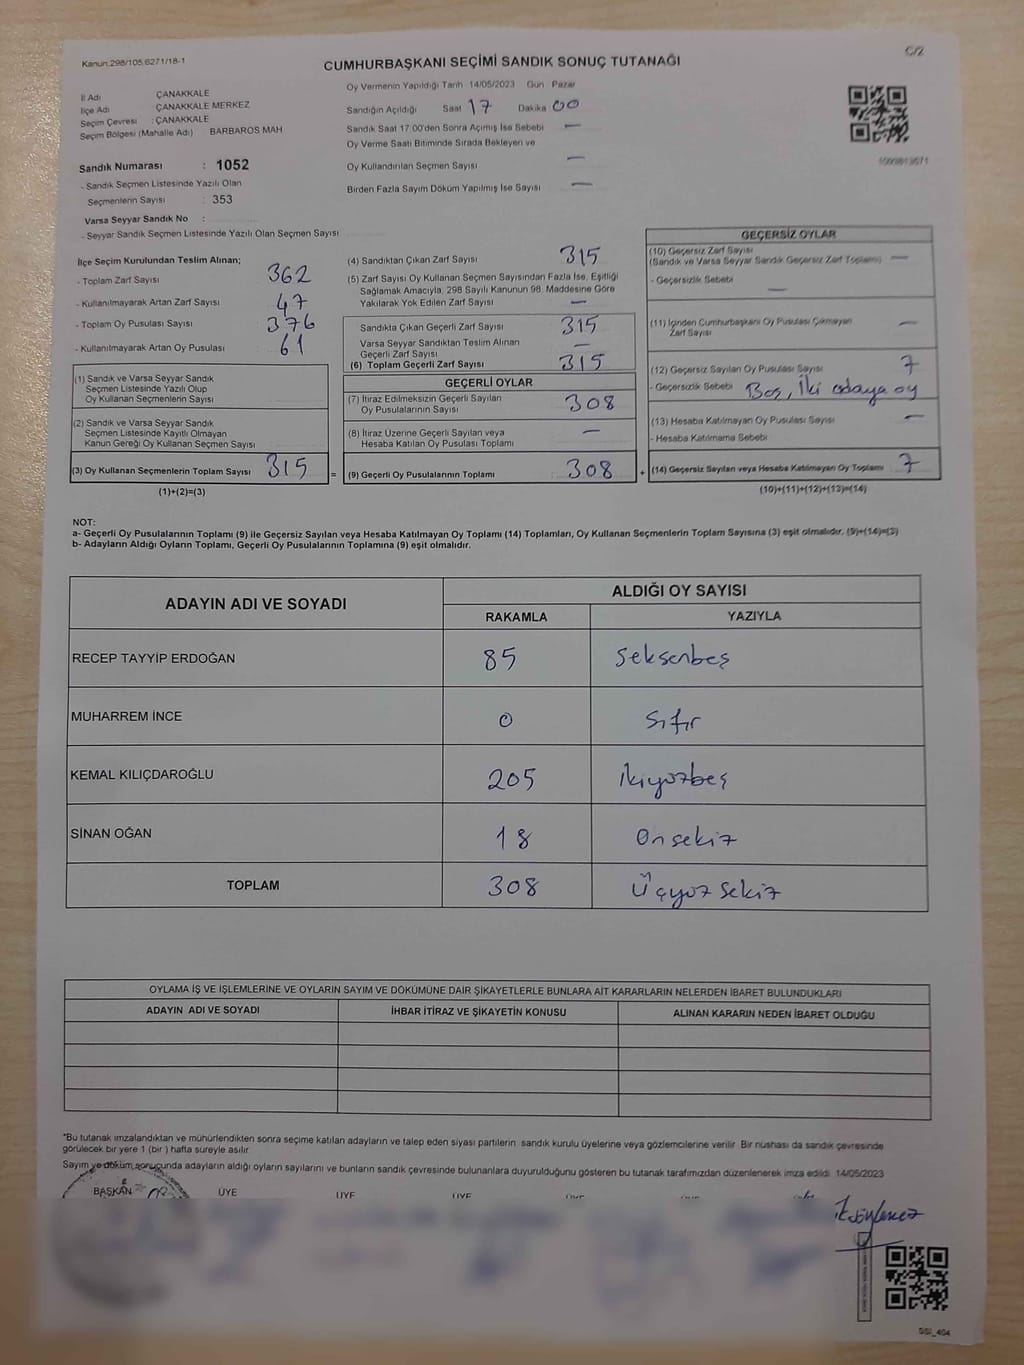 Kanun:298/105,6271/18-1
C/2
CUMHURBAŞKANI SEÇİMİ SANDIK SONUÇ TUTANAĞI
İl Adı ÇANAKKALE
İlçe Adı ÇANAKKALE MERKEZ
Seçim Çevresi : ÇANAKKALE
Seçim Bölgesi (Mahalle Adı) BARBAROS MAH
Sandık Numarası : 1052
- Sandık Seçmen Listesinde Yazılı Olan
Seçmenlerin Sayısı : 353
Varsa Seyyar Sandık No :
- Seyyar Sandık Seçmen Listesinde Yazılı Olan Seçmen Sayısı
Oy Vermenin Yapıldığı Tarih 14/05/2023 Gün Pazar
Sandığın Açıldığı Saat 17 Dakika 00
Sandık Saat 17:00'den Sonra Açımış İse Sebebi —
Oy Verme Saati Bitiminde Sırada Bekleyen ve
Oy Kullandırılan Seçmen Sayısı —
Birden Fazla Sayım Döküm Yapılmış İse Sayısı —
İlçe Seçim Kurulundan Teslim Alınan;
- Toplam Zarf Sayısı 362
- Kullanılmayarak Artan Zarf Sayısı 47
- Toplam Oy Pusulası Sayısı 376
- Kullanılmayarak Artan Oy Pusulası 61
(1) Sandık ve Varsa Seyyar Sandık
Seçmen Listesinde Yazılı Olup
Oy Kullanan Seçmenlerin Sayısı
(2) Sandık ve Varsa Seyyar Sandık
Seçmen Listesinde Kayıtlı Olmayan
Kanun Gereği Oy Kullanan Seçmen Sayısı
(3) Oy Kullanan Seçmenlerin Toplam Sayısı 315 =
(1)+(2)=(3)
(4) Sandıktan Çıkan Zarf Sayısı 315
(5) Zarf Sayısı Oy Kullanan Seçmen Sayısından Fazla İse, Eşitliği
Sağlamak Amacıyla; 298 Sayılı Kanunun 98. Maddesine Göre
Yakılarak Yok Edilen Zarf Sayısı —
Sandıkta Çıkan Geçerli Zarf Sayısı 315
Varsa Seyyar Sandıktan Teslim Alınan
Geçerli Zarf Sayısı —
(6) Toplam Geçerli Zarf Sayısı 315
GEÇERLİ OYLAR
(7) İtiraz Edilmeksizin Geçerli Sayılan
Oy Pusulalarının Sayısı 308
(8) İtiraz Üzerine Geçerli Sayılan veya
Hesaba Katılan Oy Pusulası Toplamı —
(9) Geçerli Oy Pusulalarının Toplamı 308 +
GEÇERSİZ OYLAR
(10) Geçersiz Zarf Sayısı
(Sandık ve Varsa Seyyar Sandık Geçersiz Zarf Toplamı) —
- Geçersizlik Sebebi —
(11) İçinden Cumhurbaşkanı Oy Pusulası Çıkmayan
Zarf Sayısı —
(12) Geçersiz Sayılan Oy Pusulası Sayısı 7
- Geçersizlik Sebebi Boş, İki adaya oy
(13) Hesaba Katılmayan Oy Pusulası Sayısı —
- Hesaba Katılmama Sebebi
(14) Geçersiz Sayılan veya Hesaba Katılmayan Oy Toplamı 7
(10)+(11)+(12)+(13)=(14)
NOT:
a- Geçerli Oy Pusulalarının Toplamı (9) ile Geçersiz Sayılan veya Hesaba Katılmayan Oy Toplamı (14) Toplamları, Oy Kullanan Seçmenlerin Toplam Sayısına (3) eşit olmalıdır. (9)+(14)=(3)
b- Adayların Aldığı Oyların Toplamı, Geçerli Oy Pusulalarının Toplamına (9) eşit olmalıdır.
ADAYIN ADI VE SOYADI ALDIĞI OY SAYISI
RAKAMLA YAZIYLA
RECEP TAYYİP ERDOĞAN 85 Seksenbeş
MUHARREM İNCE 0 Sıfır
KEMAL KILIÇDAROĞLU 205 İkiyüzbeş
SİNAN OĞAN 18 Onsekiz
TOPLAM 308 Üçyüz sekiz
OYLAMA İŞ VE İŞLEMLERİNE VE OYLARIN SAYIM VE DÖKÜMÜNE DAİR ŞİKAYETLERLE BUNLARA AİT KARARLARIN NELERDEN İBARET BULUNDUKLARI
ADAYIN ADI VE SOYADI İHBAR İTİRAZ VE ŞİKAYETİN KONUSU ALINAN KARARIN NEDEN İBARET OLDUĞU
*Bu tutanak imzalandıktan ve mühürlendikten sonra seçime katılan adayların ve talep eden siyasi partilerin sandık kurulu üyelerine veya gözlemcilerine verilir. Bir nüshası da sandık çevresinde
görülecek bir yere 1 (bir ) hafta süreyle asılır.
Sayım ve döküm sonucunda adayların aldığı oyların sayılarını ve bunların sandık çevresinde bulunanlara duyurulduğunu gösteren bu tutanak tarafımızdan düzenlenerek imza edildi. 14/05/2023
BAŞKAN ÜYE ÜYE ÜYE
SSI_404